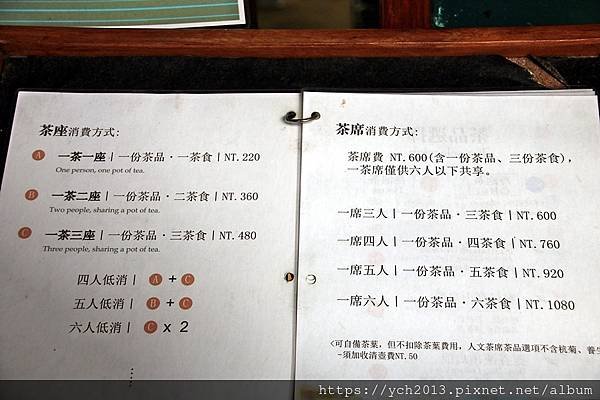 茶座消費方式:
A 一茶一座 | 一份茶品・一茶食 | NT. 220
One person, one pot of tea.
B 一茶二座 | 一份茶品・二茶食 | NT. 360
Two people, sharing a pot of tea.
C 一茶三座 | 一份茶品・三茶食 | NT. 480
Three people, sharing a pot of tea.
四人低消 | A + C
五人低消 | B + C
六人低消 | C x 2
茶席消費方式:
茶席費 NT.600(含一份茶品、三份茶食),
一茶席僅供六人以下共享。
一席三人 | 一份茶品・三茶食 | NT. 600
一席四人 | 一份茶品・四茶食 | NT. 760
一席五人 | 一份茶品・五茶食 | NT. 920
一席六人 | 一份茶品・六茶食 | NT. 1080
<可自備茶葉，但不扣除茶葉費用，人文茶席茶品選項不含桃菊、養生
-須加收清壺費NT.50
https://ych2013.pixnet.net/album